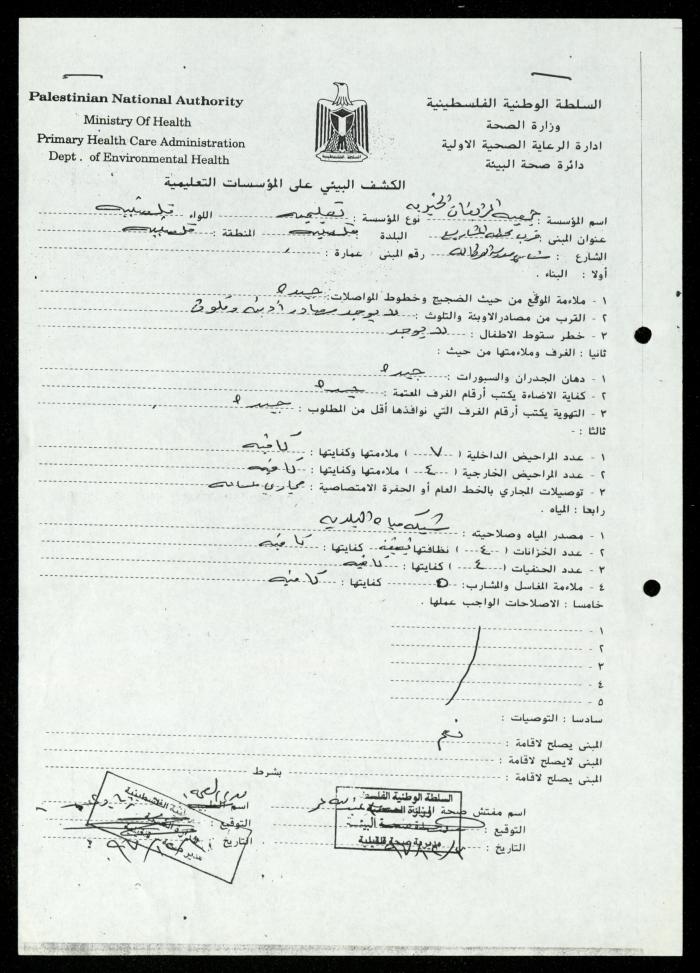 Palestinian National Authority
Ministry Of Health
Primary Health Care Administration
Dept. of Environmental Health
السلطة الوطنية الفلسطينية
وزارة الصحة
ادارة الرعاية الصحية الاولية
دائرة صحة البيئة
السلطة الفلسطينية
الكشف البيئي على المؤسسات التعليمية
اسم المؤسسة : جمعية المرابطات الخيرية نوع المؤسسة : تعليمية اللواء قلقيلية
عنوان المبنى : قرب محطة المشاريع البلدة قلقيلية المنطقة : قلقيلية
الشارع : شارع مدرسة الوكالة رقم المبنى عمارة :
أولا : البناء .
١ - ملاءمة الموقع من حيث الضجيج وخطوط المواصلات : جيدة
٢ - القرب من مصادر الاوبئة والتلوث : لا يوجد مصادر أوبئة وتلوث
٣ - خطر سقوط الاطفال : لا يوجد
ثانيا : الغرف وملاءمتها من حيث :
١ - دهان الجدران والسبورات : جيدة
٢ - كفاية الاضاءة يكتب أرقام الغرف المعتمة : جيدة
٣ - التهوية يكتب أرقام الغرف التي نوافذها أقل من المطلوب : جيدة
ثالثا : -
١ - عدد المراحيض الداخلية ( ٧ ) ملاءمتها وكفايتها : كافية
٢ - عدد المراحيض الخارجية ( ٤ ) ملاءمتها وكفايتها : كافية
٣ - توصيلات المجاري بالخط العام أو الحفرة الامتصاصية : مجاري
رابعا : المياه .
١ - مصدر المياه وصلاحيته : شبكة مياه البلدية
٢ - عدد الخزانات ( ٤ ) نظافتها نظيفة كفايتها : كافية
٣ - عدد الحنفيات ( ٤ ) كفايتها : كافية
٤ - ملاءمة المغاسل والمشارب : ٥ كفايتها : كافية
خامسا : الاصلاحات الواجب عملها .
١ -
٢ -
٣ -
٤ -
٥ -
سادسا : التوصيات :
المبنى يصلح لاقامة : نعم
المبنى لايصلح لاقامة :
المبنى يصلح لاقامة : بشرط
اسم مفتش صحة
التوقيع :
التاريخ :
السلطة الوطنية الفلسط
وزارة الصحة
صحة البيئة
مديرية صحة قلقيلية
اسم
التوقيع :
التاريخ :